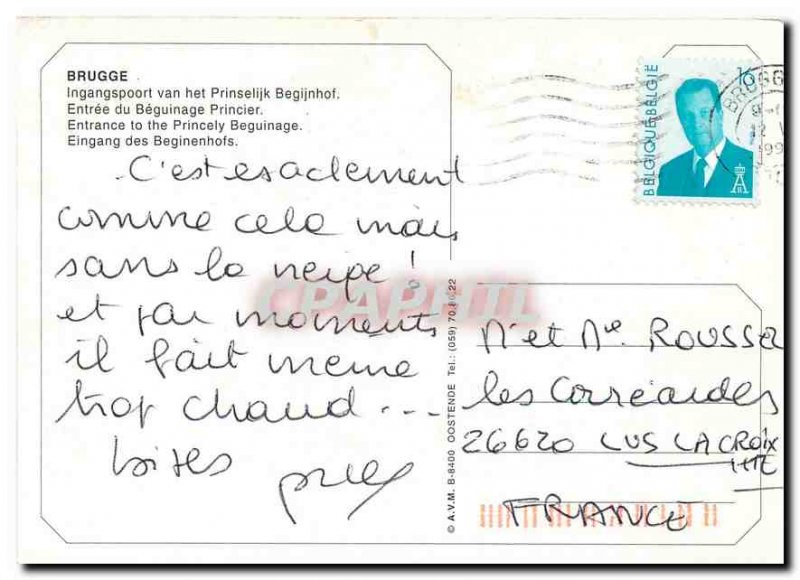 BRUGGE
Ingangspoort van het Prinselijk Begijnhof.
Entrée du Béguinage Princier.
Entrance to the Princely Beguinage.
Eingang des Beginenhofs.
C'est esaclement
comme cela mais
sans la neige!
et par moments
il fait meme
trop chaud...
bises
© A.V.M. B-8400 OOSTENDE Tel.: (059) 70.80.22
BELGIQUE-BELGIË
16
BRUGG
CPAPHIL
Mr et Me ROUSSET
les Corréardes
26620 LUS LA CROIX
HTE
FRANCE